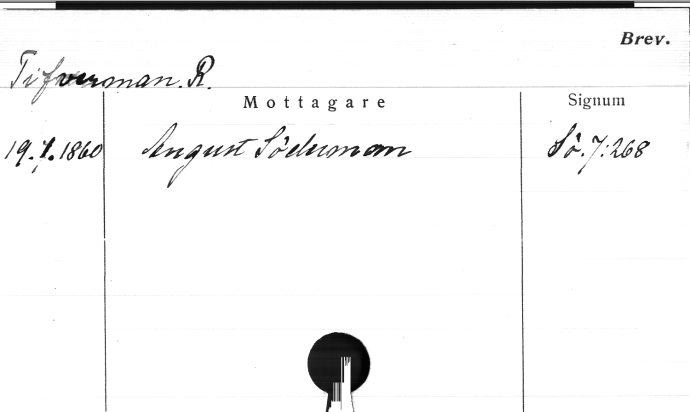 Brev.
Tifverman. R.
Mottagare Signum
19. 7. 1860 August Söderman Sö. 7:268